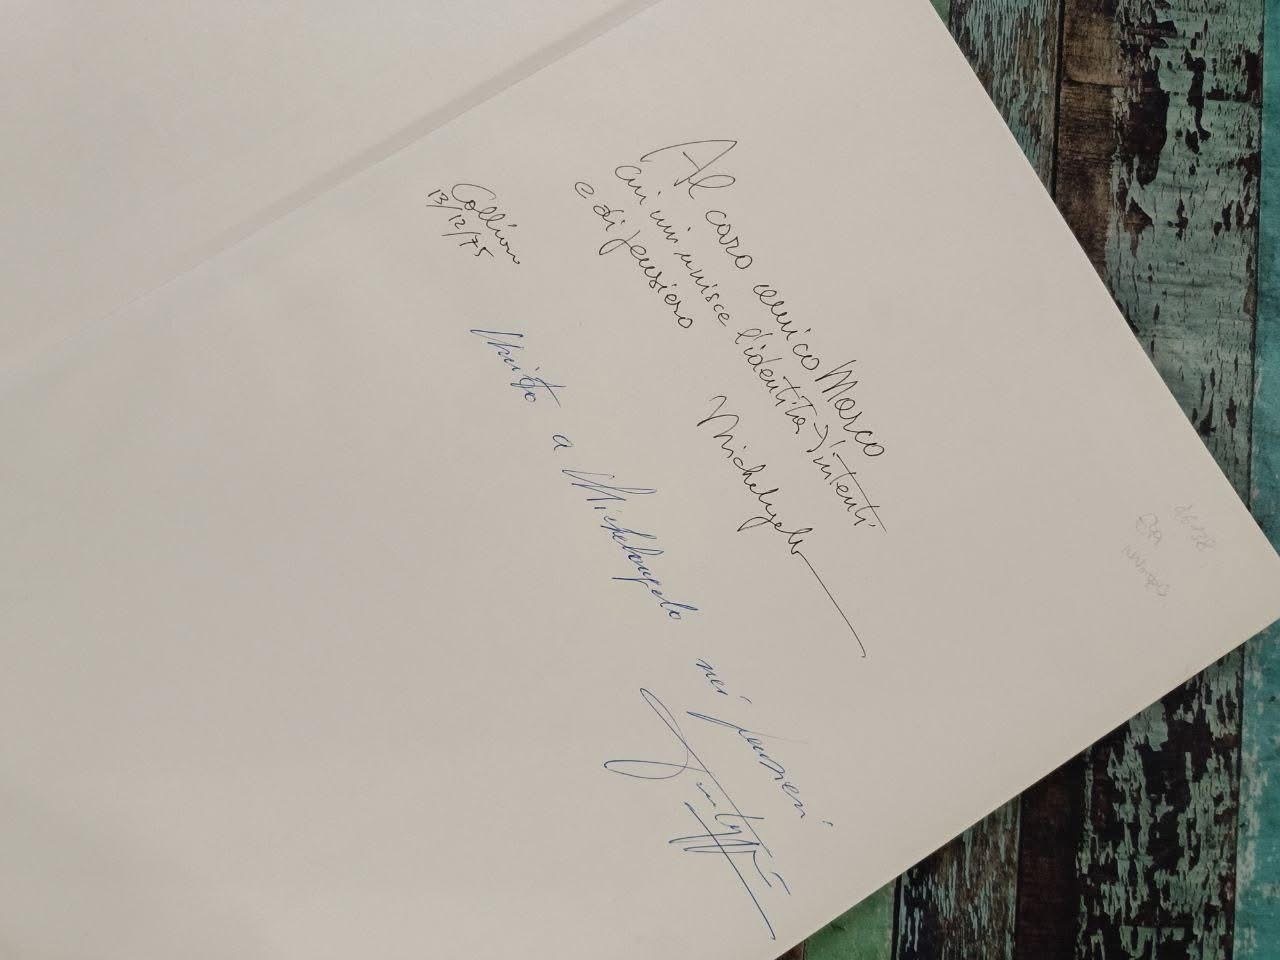 Al caro amico Marco
cui mi unisce l'identità d'intenti
e di pensiero
Michelangelo
Collino
13/12/75
Unito a Michelangelo nei pensieri